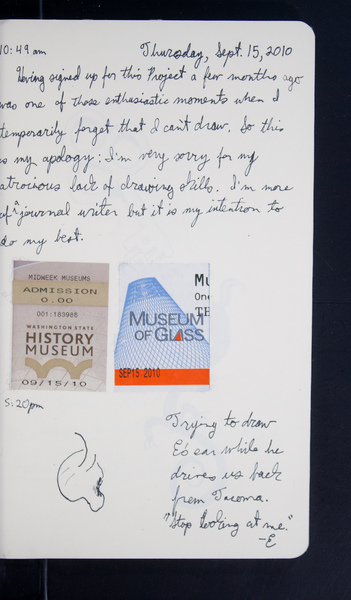 10:49 am Thursday, Sept. 15, 2010
Having signed up for this Project a few months ago
was one of those enthusiastic moments when I
temporarily forget that I can't draw. So this
is my apology: I'm very sorry for my
atrocious lack of drawing skills. I'm more
of a journal writer but it is my intention to
do my best.
MIDWEEK MUSEUMS
ADMISSION
0.00
001:183985
WASHINGTON STATE
HISTORY
MUSEUM
09/15/10
Mu
One
TE
MUSEUM
OF GLASS
SEP15 2010
5:20pm
Trying to draw
E's ear while he
drives us back
from Tacoma.
"Stop looking at me."
-E